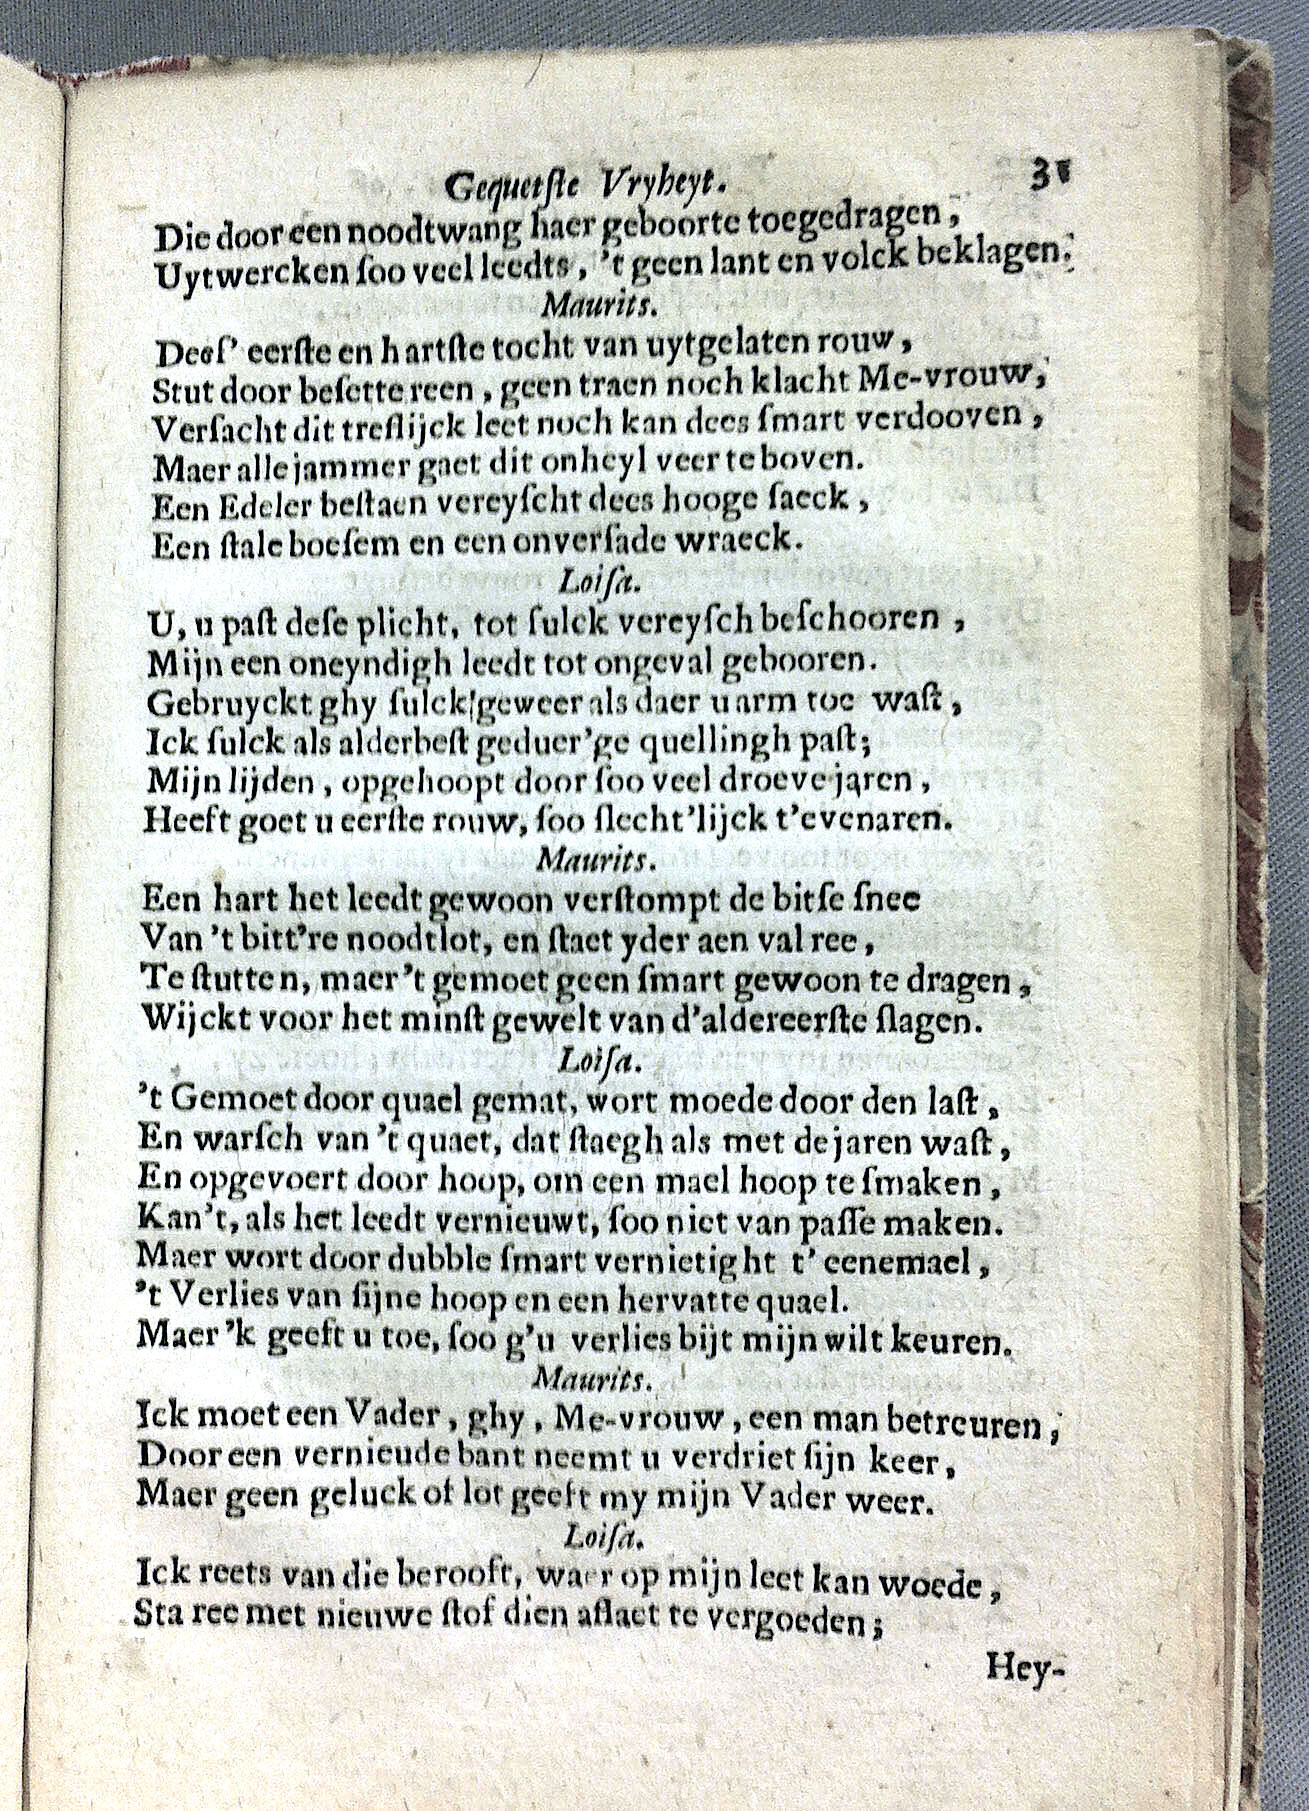 Gequetſte Vryheyt. 31
Die door een noodtwang haer geboorte toegedragen,
Uytwercken ſoo veel leedts, 't geen lant en volck beklagen.
Maurits.
Deeſ' eerſte en hartſte tocht van uytgelaten rouw,
Stut door beſette reen, geen traen noch klacht Me-vrouw,
Verſacht dit treflijck leet noch kan dees ſmart verdooven,
Maer alle jammer gaet dit onheyl veer te boven.
Een Edeler beſtaen vereyſcht dees hooge ſaeck,
Een ſtale boeſem en een onverſade wraeck.
Loiſa.
U, u paſt deſe plicht, tot ſulck vereyſch beſchooren,
Mijn een oneyndigh leedt tot ongeval gebooren.
Gebruyckt ghy ſulck geweer als daer u arm toe waſt,
Ick ſulck als alderbeſt geduer'ge quellingh paſt;
Mijn lijden, opgehoopt door ſoo veel droeve jaren,
Heeft goet u eerſte rouw, ſoo ſlecht'lijck t'evenaren.
Maurits.
Een hart het leedt gewoon verſtompt de bitſe ſnee
Van 't bitt're noodtlot, en ſtaet yder aen val ree,
Te ſtutten, maer 't gemoet geen ſmart gewoon te dragen,
Wijckt voor het minſt gewelt van d'aldereerſte ſlagen.
Loiſa.
't Gemoet door quael gemat, wort moede door den laſt,
En warſch van 't quaet, dat ſtaegh als met de jaren waſt,
En opgevoert door hoop, om een mael hoop te ſmaken,
Kan't, als het leedt vernieuwt, ſoo niet van paſſe maken.
Maer wort door dubble ſmart vernietight t' eenemael,
't Verlies van ſijne hoop en een hervatte quael.
Maer 'k geeft u toe, ſoo g'u verlies bijt mijn wilt keuren.
Maurits.
Ick moet een Vader, ghy, Me-vrouw, een man betreuren,
Door een vernieude bant neemt u verdriet ſijn keer,
Maer geen geluck of lot geeft my mijn Vader weer.
Loiſa.
Ick reets van die berooft, waer op mijn leet kan woede,
Sta ree met nieuwe ſtof dien aflaet te vergoeden;
Hey-